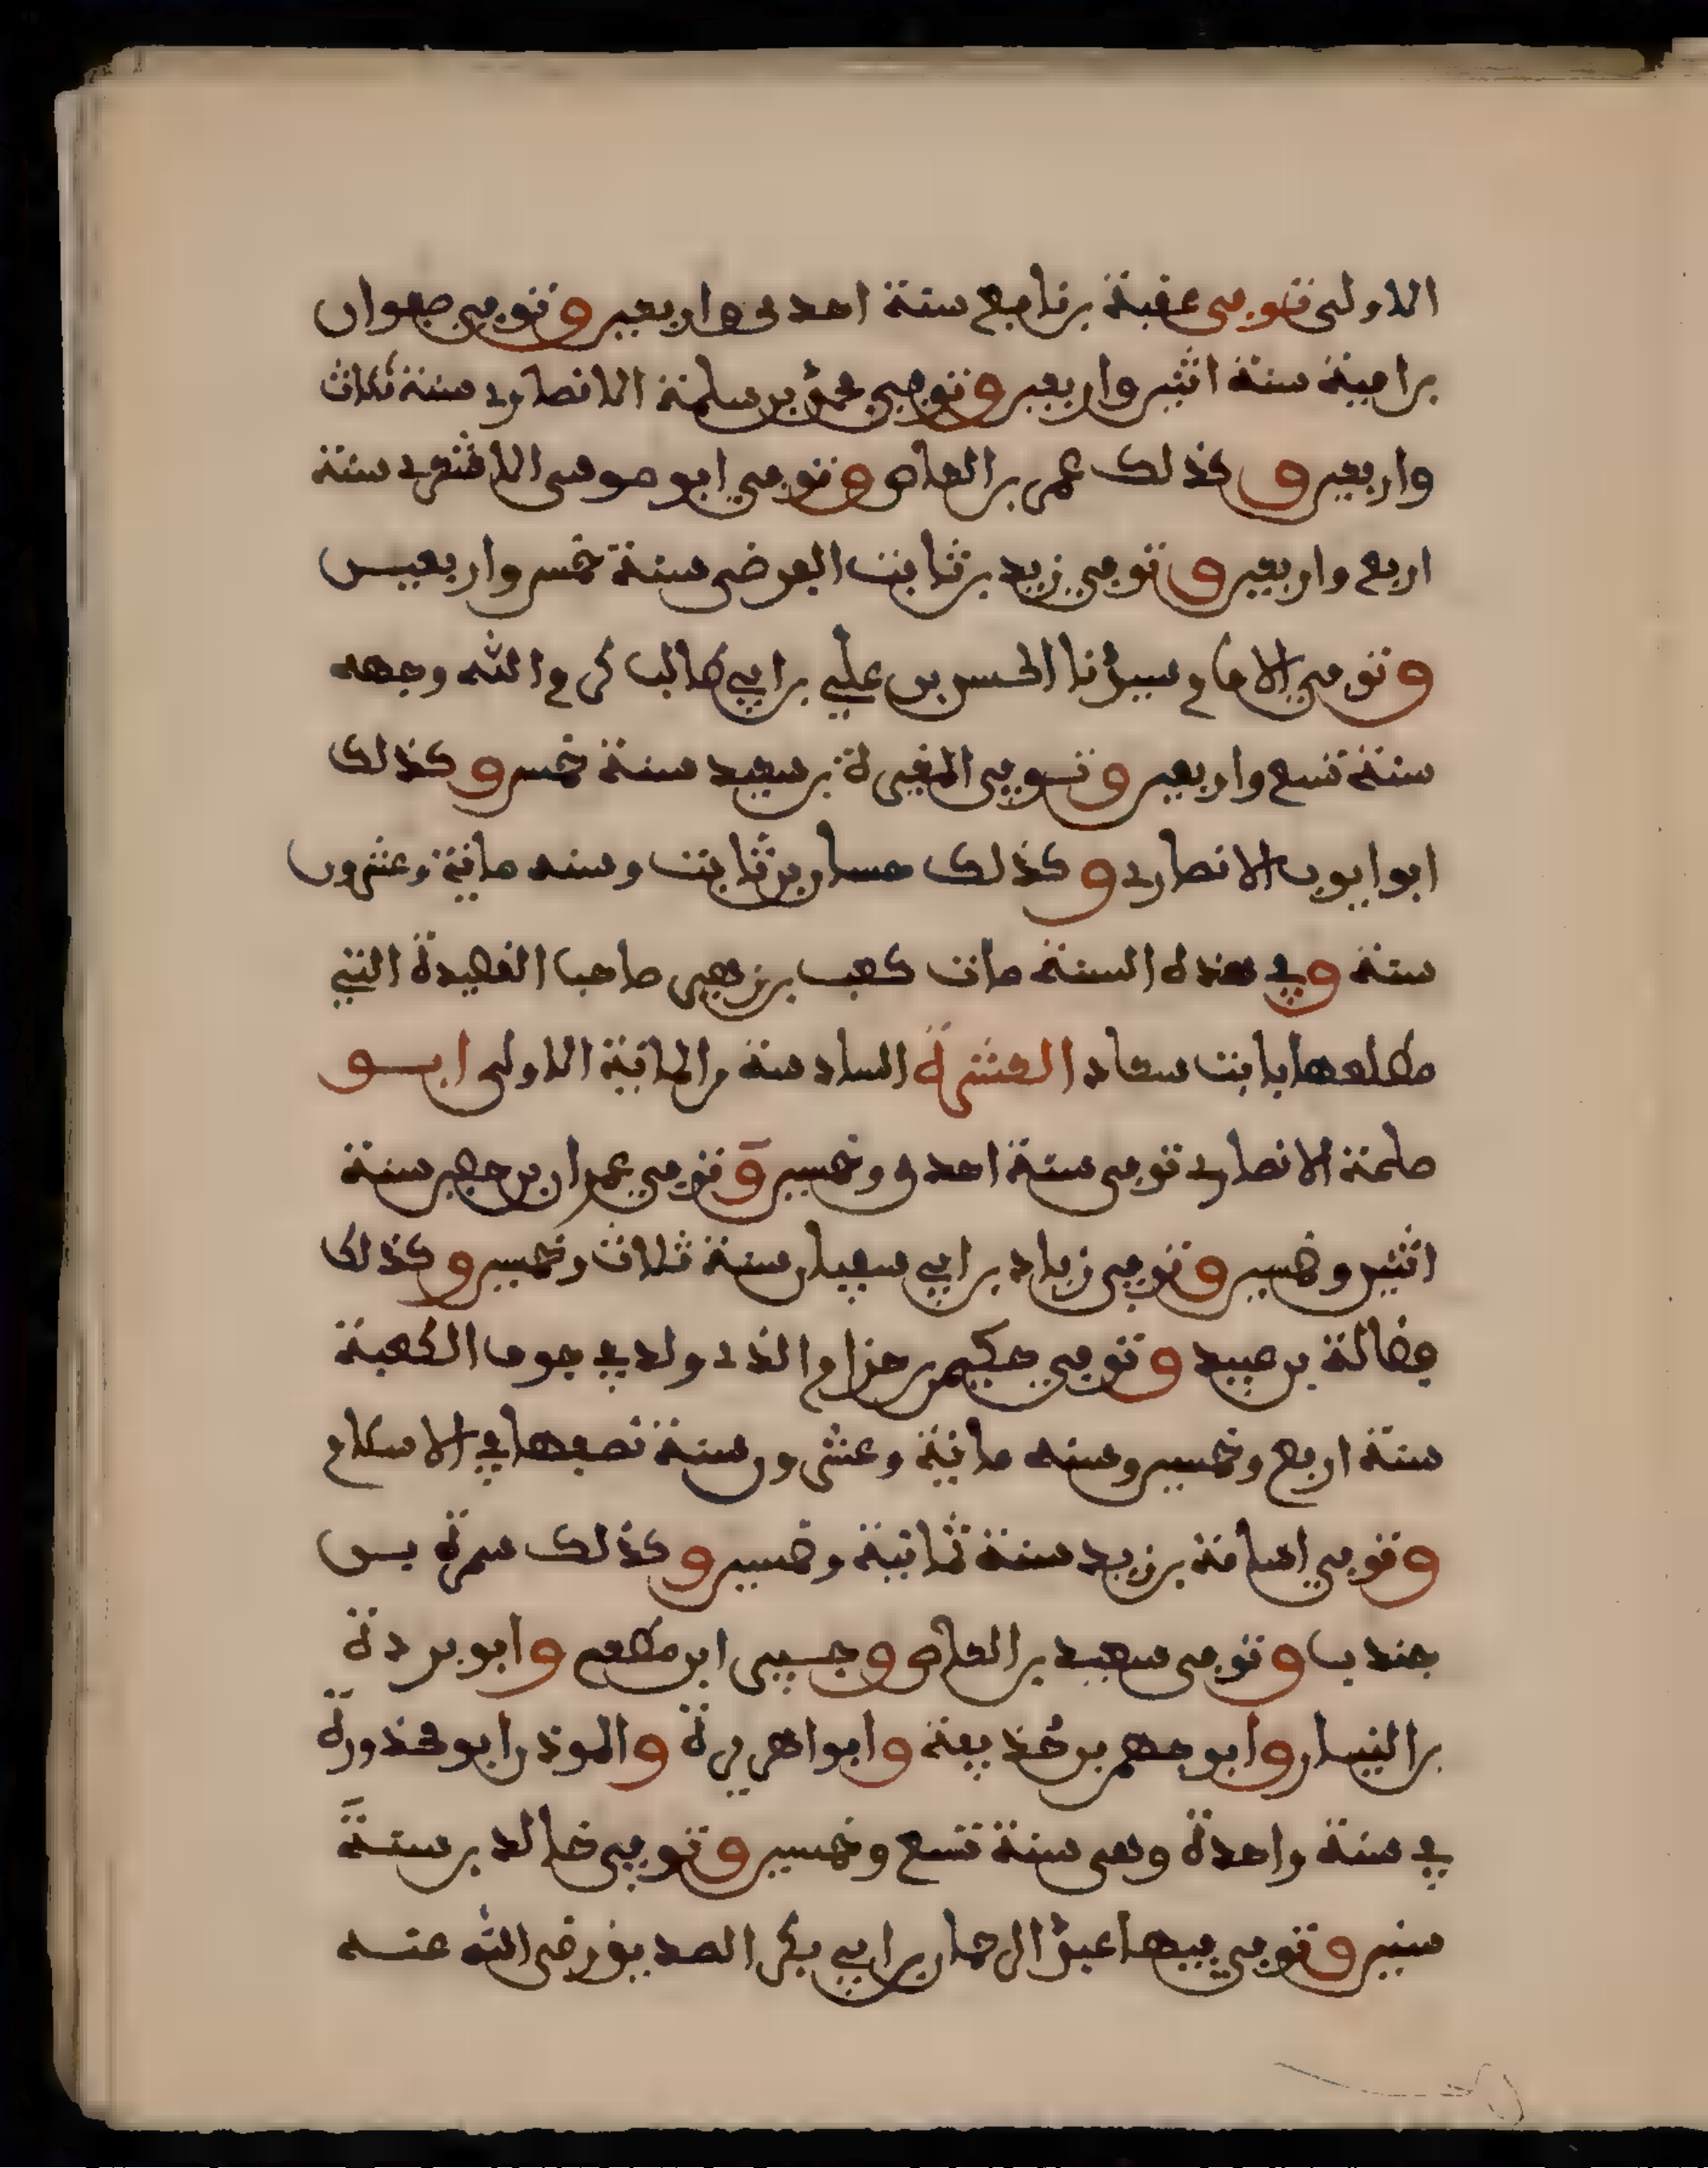 الاولى توفي عقبة بن نافع سنة احدى واربعين وتوفي صفوان
بن امية سنة اثنين واربعين وتوفي محمد بن سلمة الانصاري سنة ثلاث
واربعين وكذلك عمر بن العاص وتوفي ابو موسى الاشعري سنة
اربع واربعين وتوفي زيد بن ثابت الفرضي سنة خمس واربعين
وتوفي الامام سيدنا الحسن بن علي بن ابي طالب كرم الله وجهه
سنة تسع واربعين وتوفي المغيرة بن سعيد سنة خمس وكذلك
ابو ايوب الانصاري وكذلك حسان بن ثابت وسنه مائية وعشرون
سنة وفي هذه السنة مات كعب بن زهير صاحب القصيدة التي
مطلعها بانت سعاد العشرة السادسة من المائية الاولى ابو
طلحة الانصاري توفي سنة احدى وخمسين وتوفي عمران بن حصين سنة
اثنين وخمسين وتوفي زياد بن ابي سفيان سنة ثلاث وخمسين وكذلك
فضالة بن عبيد وتوفي حكيم بن حزام الذي ولد في جوف الكعبة
سنة اربع وخمسين وسنه مائية وعشرون سنة نصفها في الاسلام
وتوفي اسامة بن زيد سنة ثمانية وخمسين وكذلك سمرة بن
جندب وتوفي سعيد بن العاص وجبير ابن مطعم وابو بردة
بن النيار وابو جهم بن حذيفة وابوا هريرة والموذن ابو محذورة
في سنة واحدة وهي سنة تسع وخمسين وتوفي خالد بن سنة
ستين وتوفي فيها عبد الرحمان بن ابي بكر الصديق رضي الله عنه